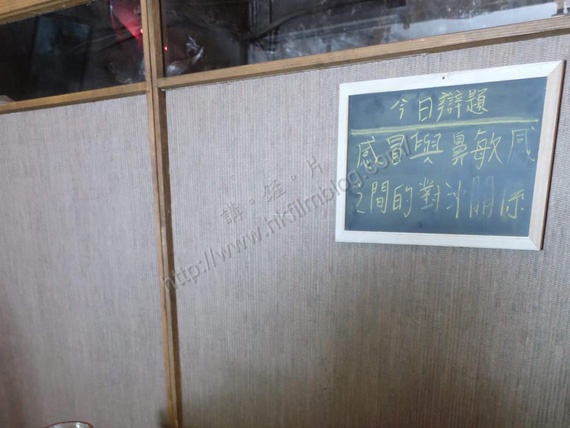 今日辯題
感冒與鼻敏感
之間的對沙關係
講。鏟。片
http://www.hkfilmblog.com/